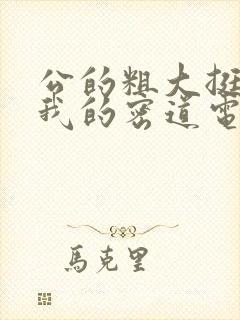 公的粗大挺
我的密道電
馬克里